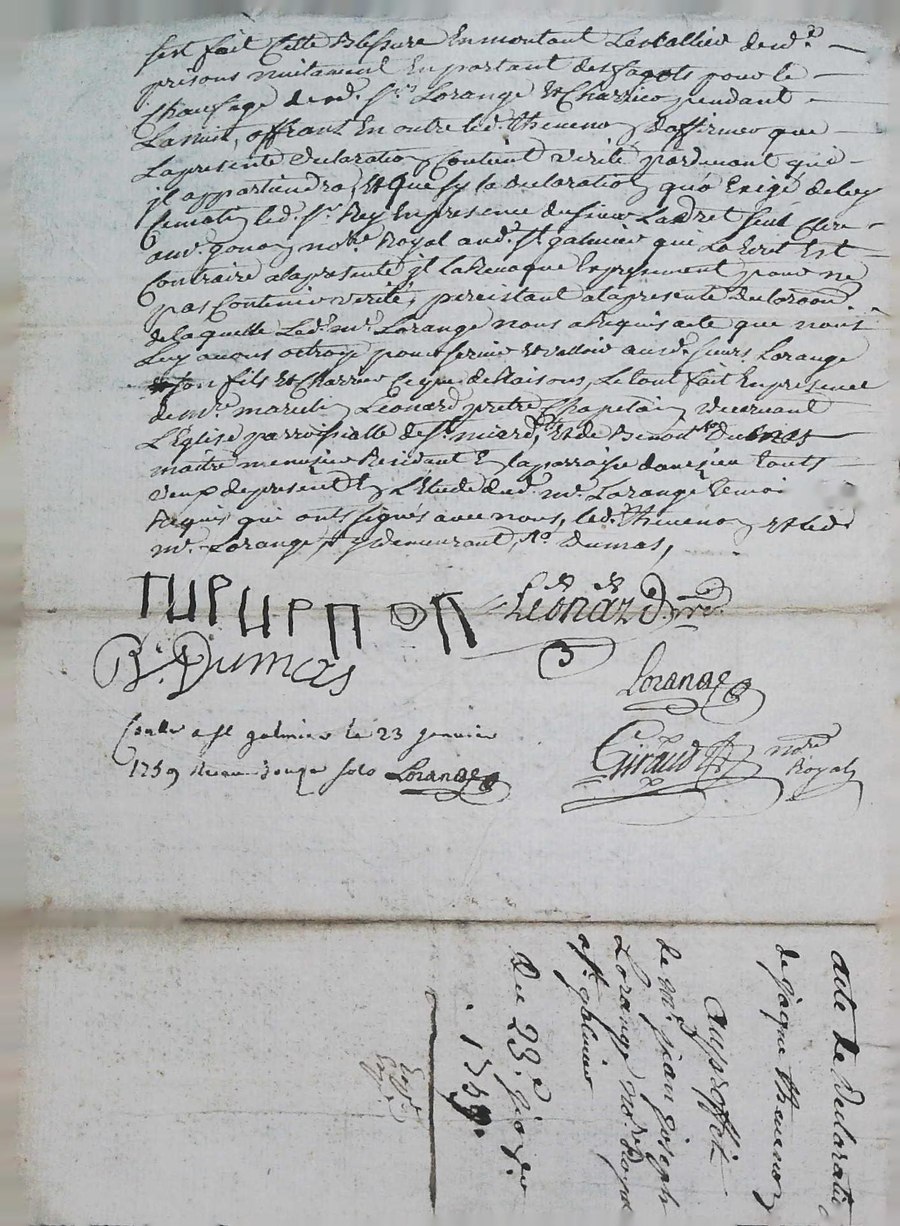 s'est fait Cette Blessure En montant L'escallier desd.
prisons nuitament En portant des fagots pour le
Chaufage desd. Srs Lorange Et Charrier pendant
La nuit, offrant En outre led. thevenon d'affirmer que
La presente declaration Contient verité pardevant qui
jl appartiendra, Et que sy la declaration qu'a Exigé de luy
Ce matin led. Sr Rey En presence du sieur Ladret seul Clerc
au Sr gonon notre Royal aud. St galmier qui La Ecrit Est
Contraire a la presente jl La Revoque Expressement pour ne
pas Contenir verité, persistant a la presente declaraon
de laquelle Led. mr Lorange nous a Requis acte que nous
Luy avons octroyé pour servir Et valloir aud. sieurs Lorange
son fils Et Charrier Ce que de Raisons, Le tout fait En presence
de mre Léonard pretre Chapelain desservant
L'Eglise parroissialle de St miard, Et de Benoit Dumas
maitre menusier Residant En la parroisse
deux de present En L'Etude dud. mr Lorange temoins
Requis qui ont signés avec nous, led. thevenon Et led.
mr Lorange, Dumas,
Léonard ptre
B. Dumas
Lorange
Giraud notre Royal
Conllé a St galmier le 23 janvier
1759 Reçu douze sols Lorange
acte de declaration
de jaque thevenon
au proffit
de mr jean joseph
Lorange no.re Royal
a St galmier
du 23e
1759.